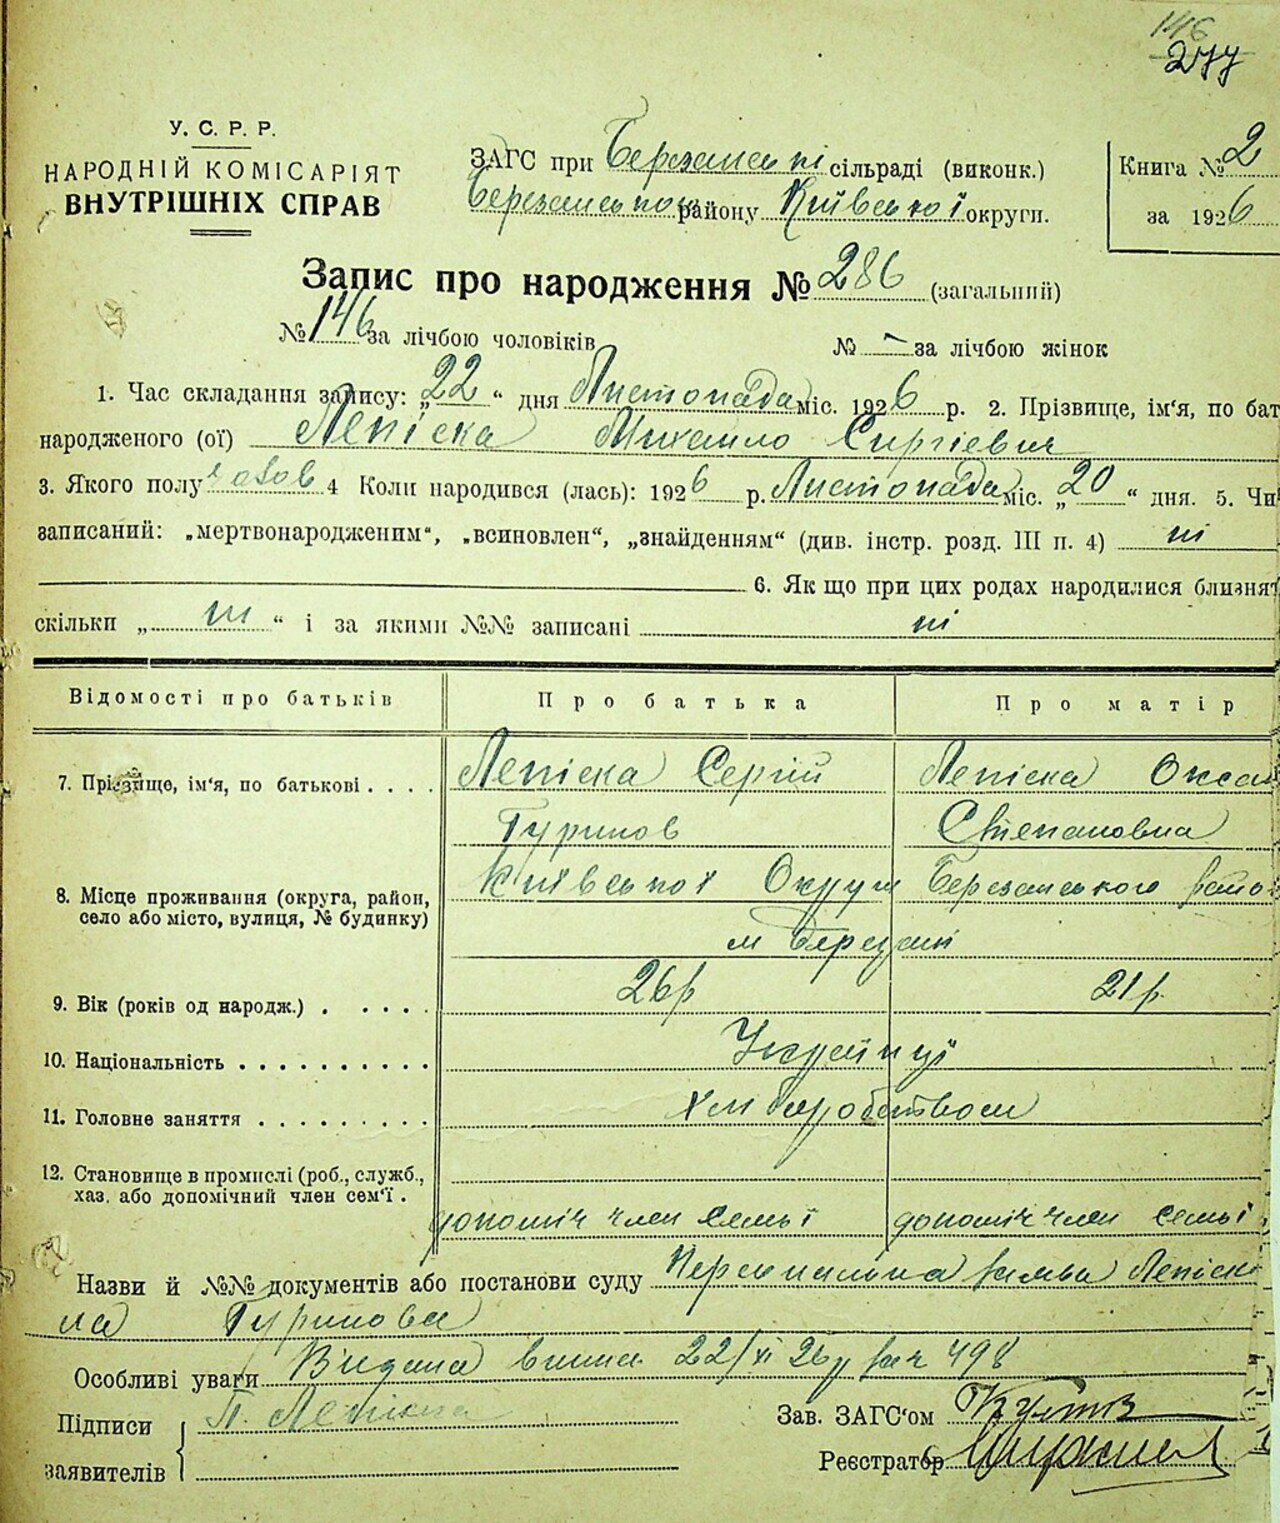 146
277
У. С. Р. Р.
НАРОДНІЙ КОМІСАРІЯТ
ВНУТРІШНІХ СПРАВ
ЗАГС при Березанські сільраді (виконк.)
Березанського району Київської округи.
Книга № 2
за 1926
Запис про народження № 286 (загальний)
№ 146 за лічбою чоловіків № – за лічбою жінок
1. Час складання запису: „22“ дня Листопада міс. 1926 р. 2. Прізвище, ім‘я, по бат
народженого (ої) Лепіска Михайло Сиргієвич
3. Якого полу чолов 4 Коли народився (лась): 1926 р. Листопада міс. „20“ дня. 5. Чи
записаний: „мертвонародженим“, „всиновлен“, „знайденням“ (див. інстр. розд. III п. 4) ні
6. Як що при цих родах народилися близнят
скільки „ні“ і за якими №№ записані ні
Відомості про батьків Про батька Про матір
7. Прізвище, ім‘я, по батькові . . . . Лепіска Сергій Лепіска Окса
Гуринов Степановна
8. Місце проживання (округа, район, Київської Округи Березанського райо
село або місто, вулиця, № будинку)
м Березані
9. Вік (років од народж.) . . . . . 26 р 21 р.
10. Національність . . . . . . . . . . Українці
11. Головне заняття . . . . . . . . . Хлиборобством
12. Становище в промислі (роб., служб.,
хаз. або допомічний член сем‘ї .
допоміч член семьї допоміч член семьї
Назви й №№ документів або постанови суду Лепіск
Гуринова
Особливі уваги Видана випис 22/XI 26 р за ч 498
Підписи П. Лепіска
заявителів
Зав. ЗАГС‘ом
Реєстратор